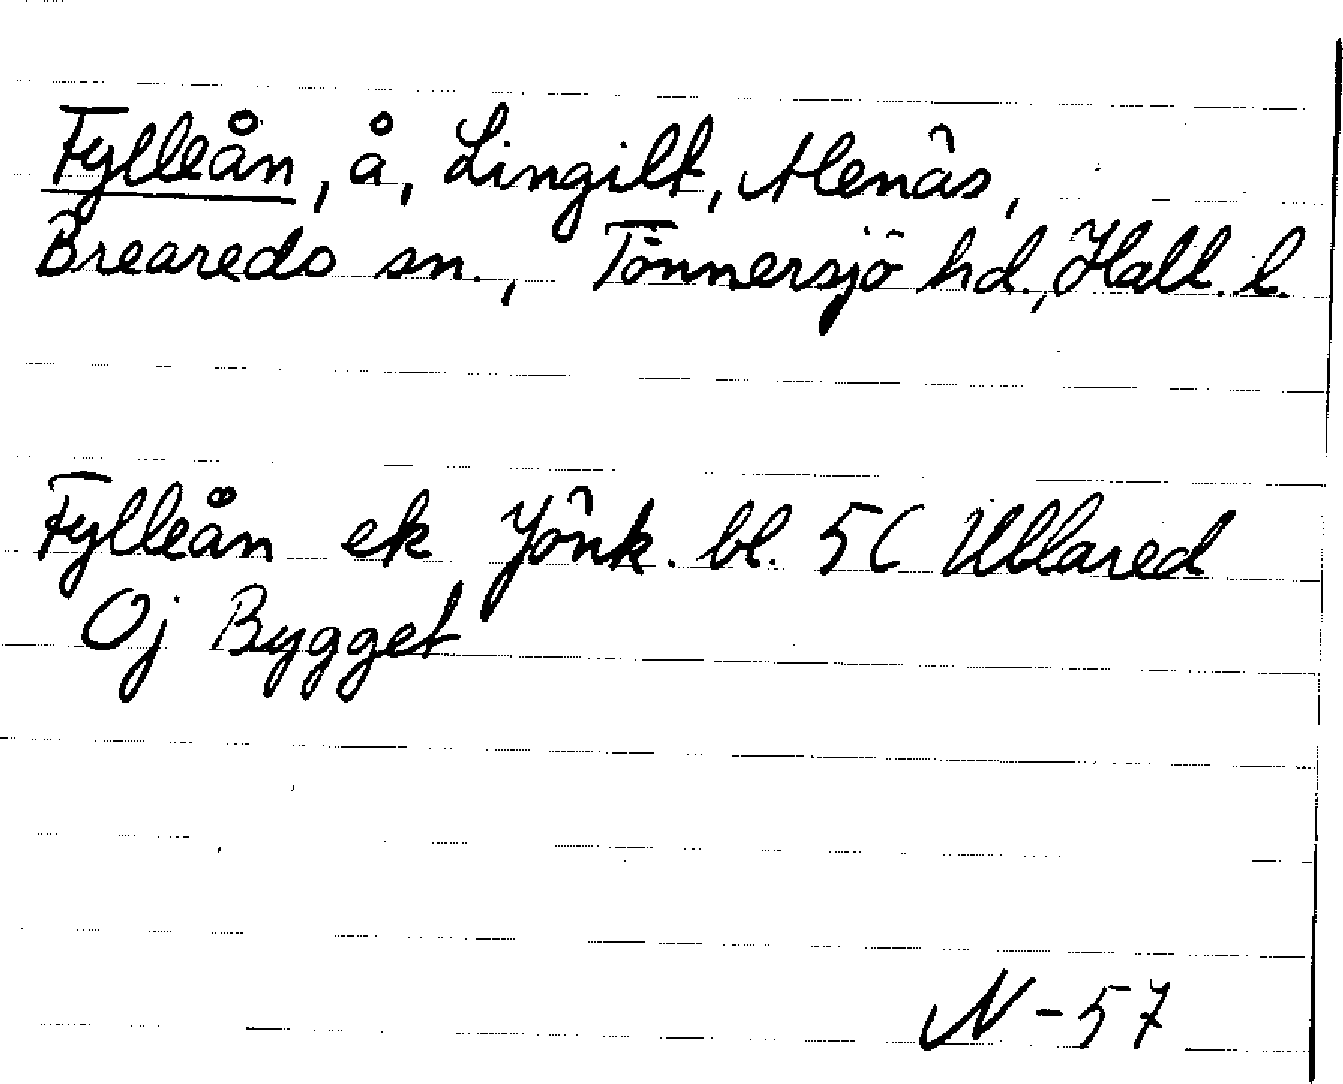 Fylleån, å, Lingilt, Alenäs,
Breareds sn., Tönnersjö hd., Hall. l.
Fylleån ek Jönk. bl. 5C Ullared
Oj Bygget
N-57